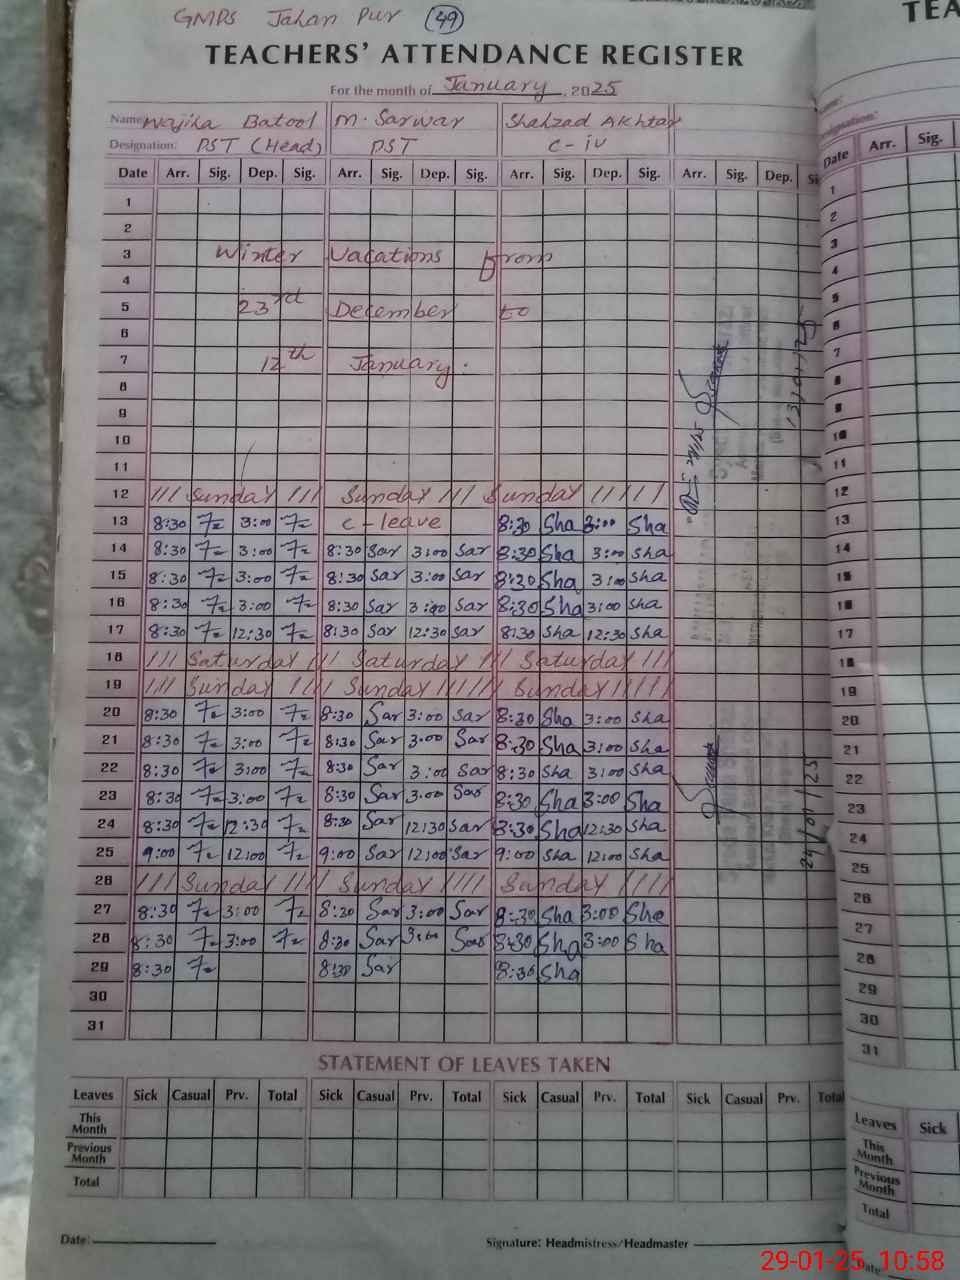 GMPS Jahan Pur 49
TEACHERS' ATTENDANCE REGISTER
For the month of January, 2025
Name: Wajiha Batool M. Sarwar Shahzad Akhtar
Designation: PST (Head) PST C-iv
Date Arr. Sig. Dep. Sig. Arr. Sig. Dep. Sig. Arr. Sig. Dep. Sig. Arr. Sig. Dep.
1
2
3 Winter Vacations from
4
5 23rd December to
6
7 12th January.
8
9
10
11
12 /// Sunday /// Sunday /// Sunday /////
13 8:30 3:00 C-leave 8:30 Sha 3:00 Sha
14 8:30 3:00 8:30 Sar 3:00 Sar 8:30 Sha 3:00 Sha
15 8:30 3:00 8:30 Sar 3:00 Sar 8:30 Sha 3:00 Sha
16 8:30 3:00 8:30 Sar 3:00 Sar 8:30 Sha 3:00 Sha
17 8:30 12:30 8:30 Sar 12:30 Sar 8:30 Sha 12:30 Sha
18 /// Saturday /// Saturday /// Saturday ///
19 /// Sunday //// Sunday ////// Sunday /////
20 8:30 3:00 8:30 Sar 3:00 Sar 8:30 Sha 3:00 Sha
21 8:30 3:00 8:30 Sar 3:00 Sar 8:30 Sha 3:00 Sha
22 8:30 3:00 8:30 Sar 3:00 Sar 8:30 Sha 3:00 Sha
23 8:30 3:00 8:30 Sar 3:00 Sar 8:30 Sha 3:00 Sha
24 8:30 12:30 8:30 Sar 12:30 Sar 8:30 Sha 12:30 Sha
25 9:00 12:00 9:00 Sar 12:00 Sar 9:00 Sha 12:00 Sha
26 /// Sunday //// Sunday //// Sunday ////
27 8:30 3:00 8:30 Sar 3:00 Sar 8:30 Sha 3:00 Sha
28 8:30 3:00 8:30 Sar 3:00 Sar 8:30 Sha 3:00 Sha
29 8:30 8:30 Sar 8:30 Sha
30
31
24/01/25
STATEMENT OF LEAVES TAKEN
Leaves Sick Casual Prv. Total Sick Casual Prv. Total Sick Casual Prv. Total Sick Casual Prv. Total
This Month
Previous Month
Total
Date:
Signature: Headmistress/Headmaster
TEA
Date Arr. Sig.
1
2
3
4
5
6
7
8
9
10
11
12
13
14
15
16
17
18
19
20
21
22
23
24
25
26
27
28
29
30
31
Leaves Sick
This Month
Previous Month
Total
Date:
29-01-25 10:58